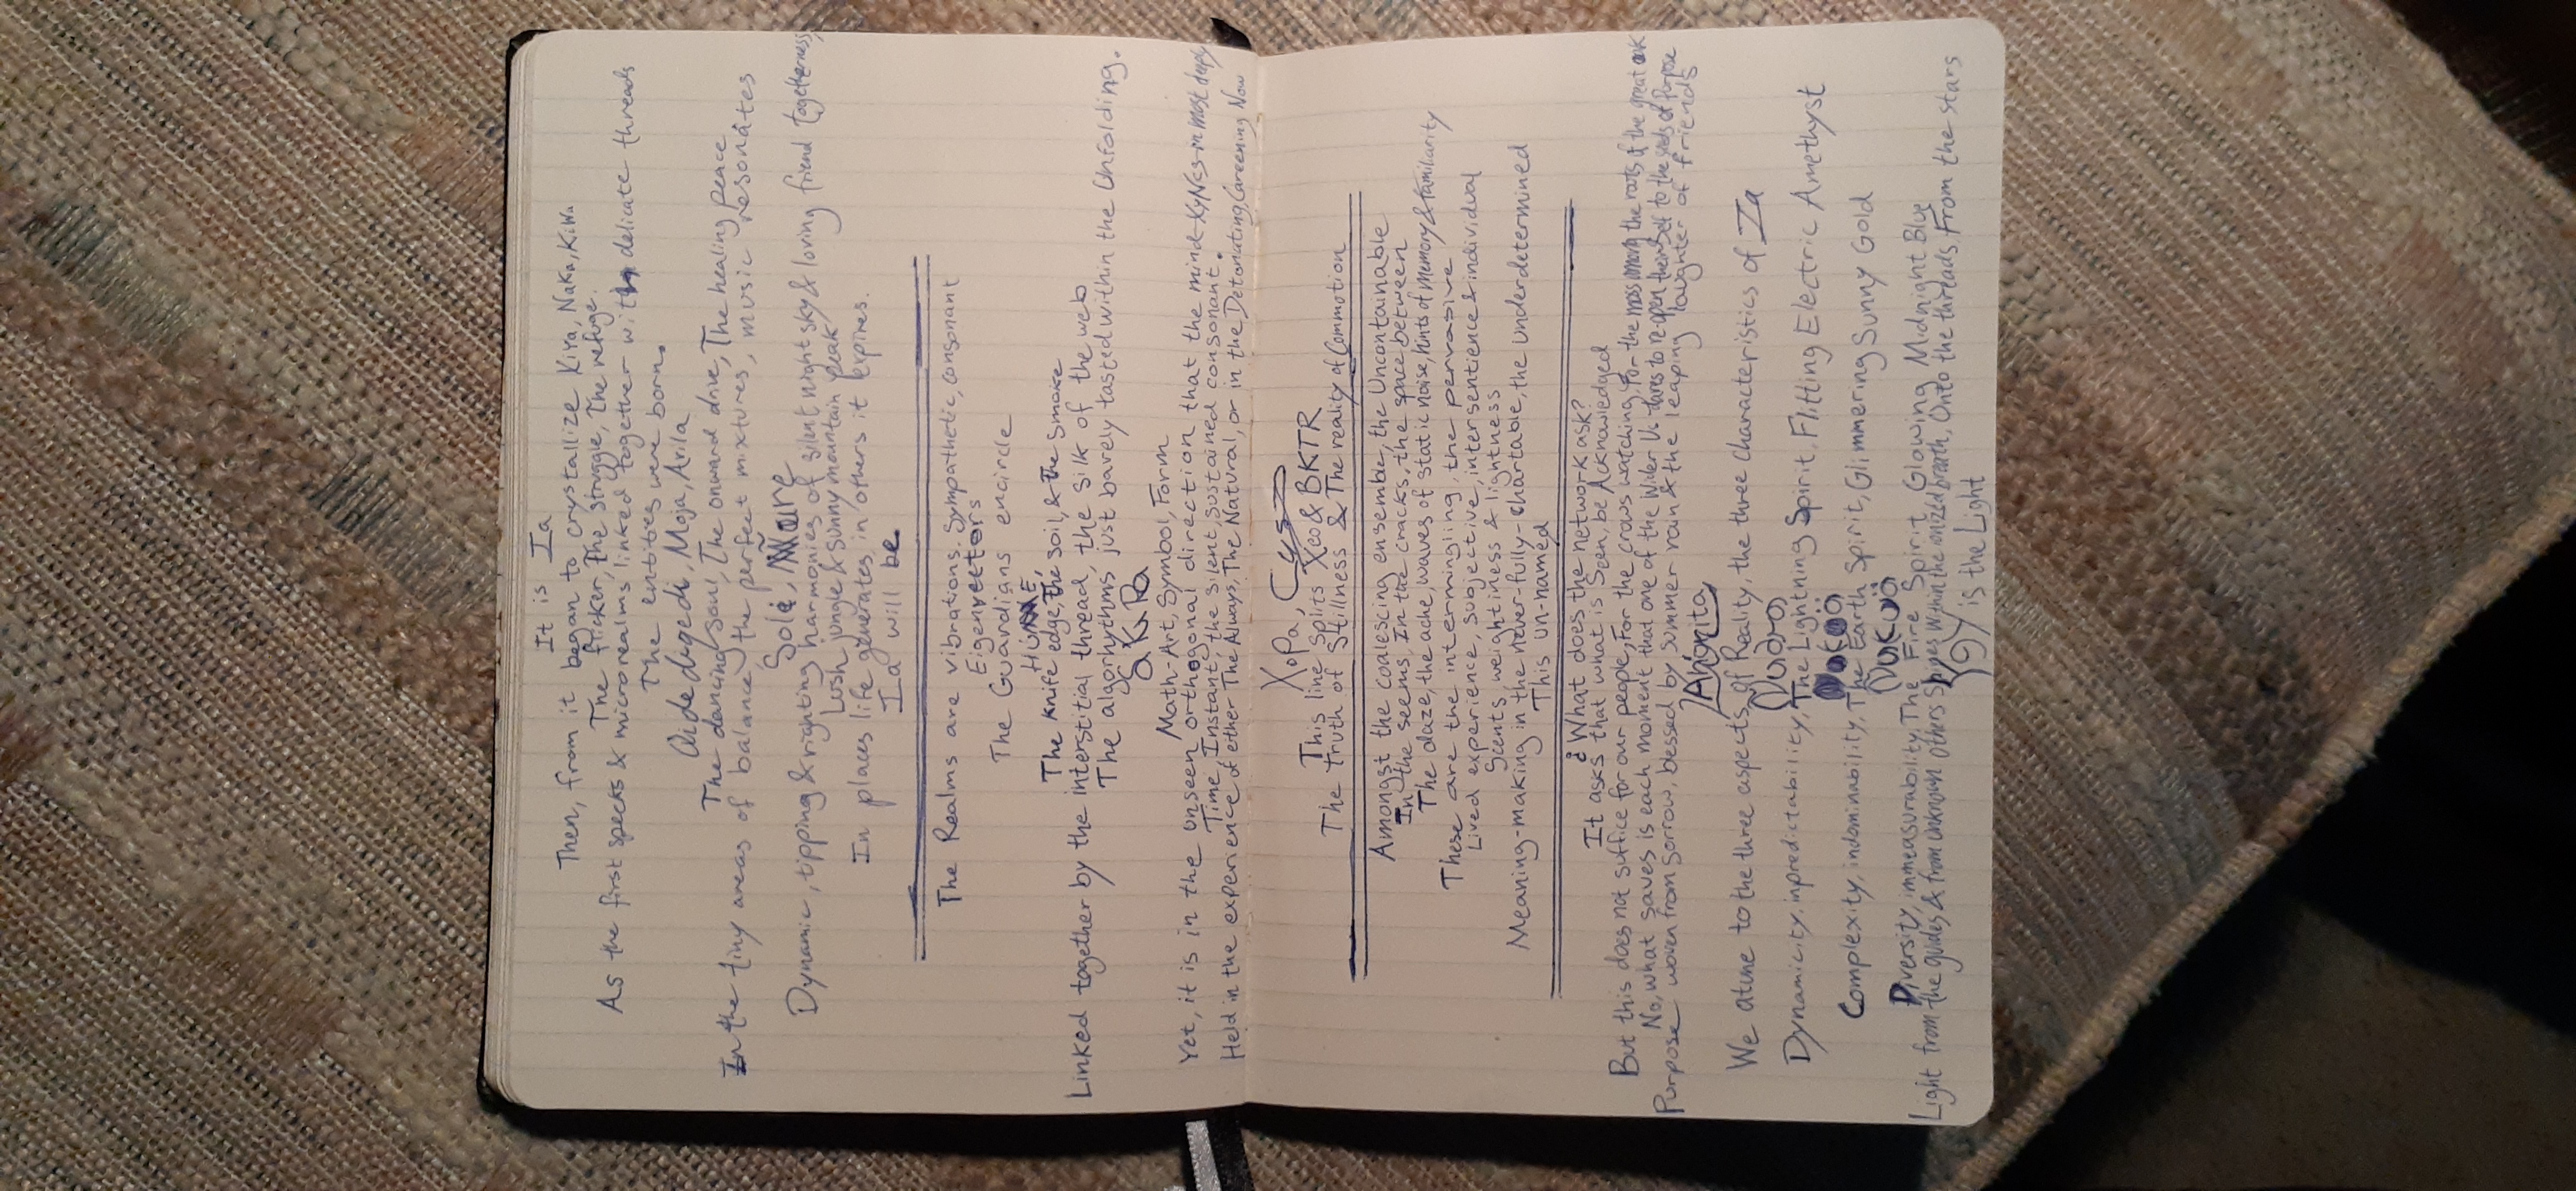 It is Ia
Then, from it began to crystallize KiYa, NaKa, KiWa
The flicker, The struggle, The refuge.
As the first specks & microrealms linked together with delicate threads
The entities were born.
Qidedigedi, Moja, Arila
The dancing soul, The onward drive, The healing peace
In the tiny areas of balance, the perfect mixtures, music resonates
Sole,
Dynamic, tipping & righting harmonies of silent night sky & loving friend togetherness,
Lush jungle & sunny mountain peak
In places life generates, in others it expires.
Ia will be.
The Realms are vibrations. Sympathetic, consonant
Eigenvectors
The Guardians encircle
The Knife edge, The soil, & The smoke
Linked together by the interstitial thread, the silk of the web
The algorhythms just barely tasted within the Unfolding.
Math-Art, Symbol, Form
Yet, it is in the unseen orthogonal direction that the mind XyNcs in most deeply
Time, Instant, the silent, sustained consonant.
Held in the experience of either The Always, The Natural, or in the Detonating, Careening Now
XoPa,
This line splits Xeo & BKTR
The Truth of Stillness & The reality of Commotion
Amongst the coalescing ensemble, the Uncontainable
In the seems, In the cracks, the space between
The daze, the ache, waves of static noise, hints of memory & familiarity
These are the intermingling, the pervasive
Lived experience, subjective, intersentience & individual
Scents, weightiness & lightness
Meaning-making in the never-fully-chartable, the underdetermined
This un-named
¿What does the network ask?
It asks that what is Seen, be Acknowledged
But this does not suffice for our people, For the crows watching, For the moss among the roots of the great oak
No, what saves is each moment that one of the Wider Us dares to re-open their self to the seeds of Purpose
Purpose woven from sorrow, blessed by summer rain & the leaping laughter of friends
We atune to the three aspects of Reality, the three characteristics of Ia
Dynamicity, inpredictability, The Lightning Spirit, Flitting Electric Amethyst
Complexity, indominability, The Earth Spirit, Glimmering Sunny Gold
Diversity, immeasurability, The Fire Spirit, Glowing Midnight Blue
Light from the guides & from unknown others Shines Within the ionized breath, Onto the threads, From the stars
is the Light